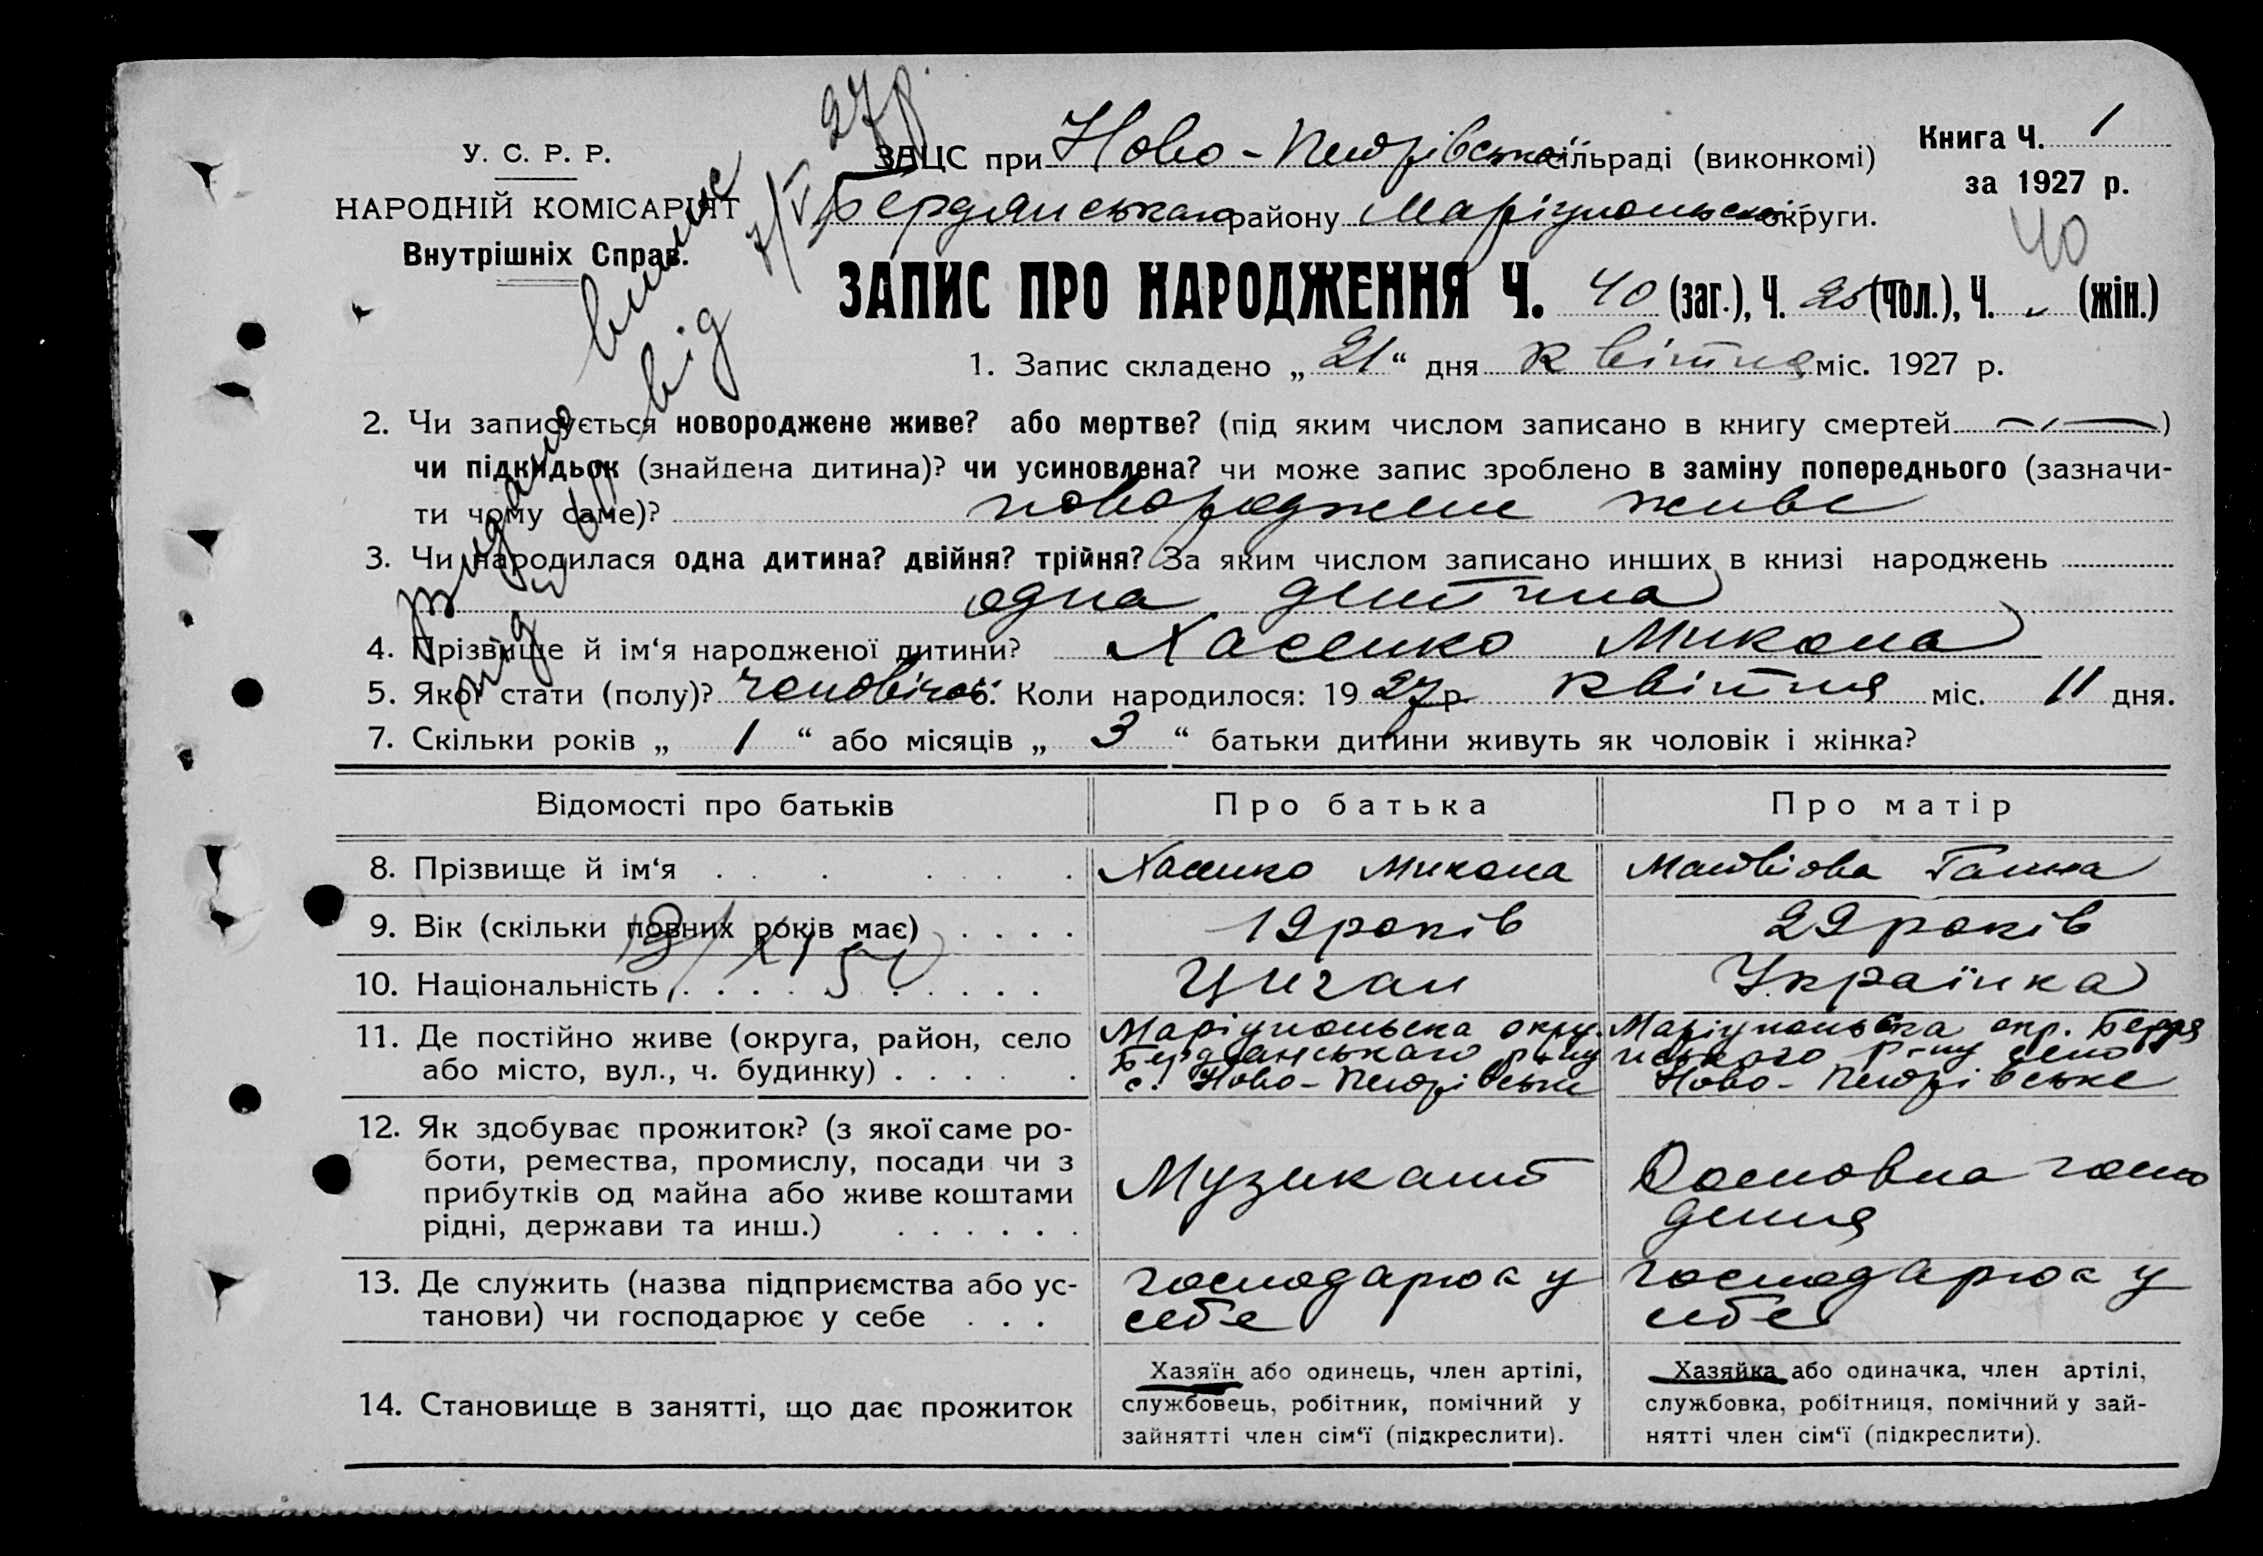 У. С. Р. Р.
НАРОДНІЙ КОМІСАРІЯТ
Внутрішніх Справ.
ЗАЦС при Ново-Петрівській сільраді (виконкомі)
Бердянського району Маріупольської округи.
Книга Ч. 1
за 1927 р.
40
Видано випис
від 7/V 27 р.
під
ЗАПИС ПРО НАРОДЖЕННЯ Ч. 40 (заг.), Ч. 25 (чол.), Ч. „ (жін.)
1. Запис складено „ 21 “ дня квітня міс. 1927 р.
2. Чи записується новороджене живе? або мертве? (під яким числом записано в книгу смертей — )
чи підкидьок (знайдена дитина)? чи усиновлена? чи може запис зроблено в заміну попереднього (зазначи-
ти чому саме)? новороджене живе
3. Чи народилася одна дитина? двійня? трійня? За яким числом записано инших в книзі народжень
одна дитина
4. Прізвище й ім‘я народженої дитини? Микола
5. Якої стати (полу)? чоловічої 6. Коли народилося: 1927 р. квітня міс. 11 дня.
7. Скільки років „ 1 “ або місяців „ 3 “ батьки дитини живуть як чоловік і жінка?
Відомості про батьків Про батька Про матір
8. Прізвище й ім‘я . . . . . . . Микола Ганна
9. Вік (скільки повних років має) . . . . 19 років 29 років
10. Національність . . . . . . . . . . Циган Українка
11. Де постійно живе (округа, район, село
або місто, вул., ч. будинку) . . . . . .
Маріупольська окру.
Бердянського р-ну
с. Ново-Петрівське
Маріупольська окр. Бердя
нського р-ну село
Ново-Петрівське
12. Як здобуває прожиток? (з якої саме ро-
боти, ремества, промислу, посади чи з
прибутків од майна або живе коштами
рідні, держави та инш.) . . . . . .
Музикант
13. Де служить (назва підприємства або ус-
танови) чи господарює у себе . . .
господарює у
себе
господарює у
себе
14. Становище в занятті, що дає прожиток
Хазяїн або одинець, член артілі,
службовець, робітник, помічний у
зайнятті член сім‘ї (підкреслити).
Хазяйка або одиначка, член артілі,
службовка, робітниця, помічний у зай-
нятті член сім‘ї (підкреслити).